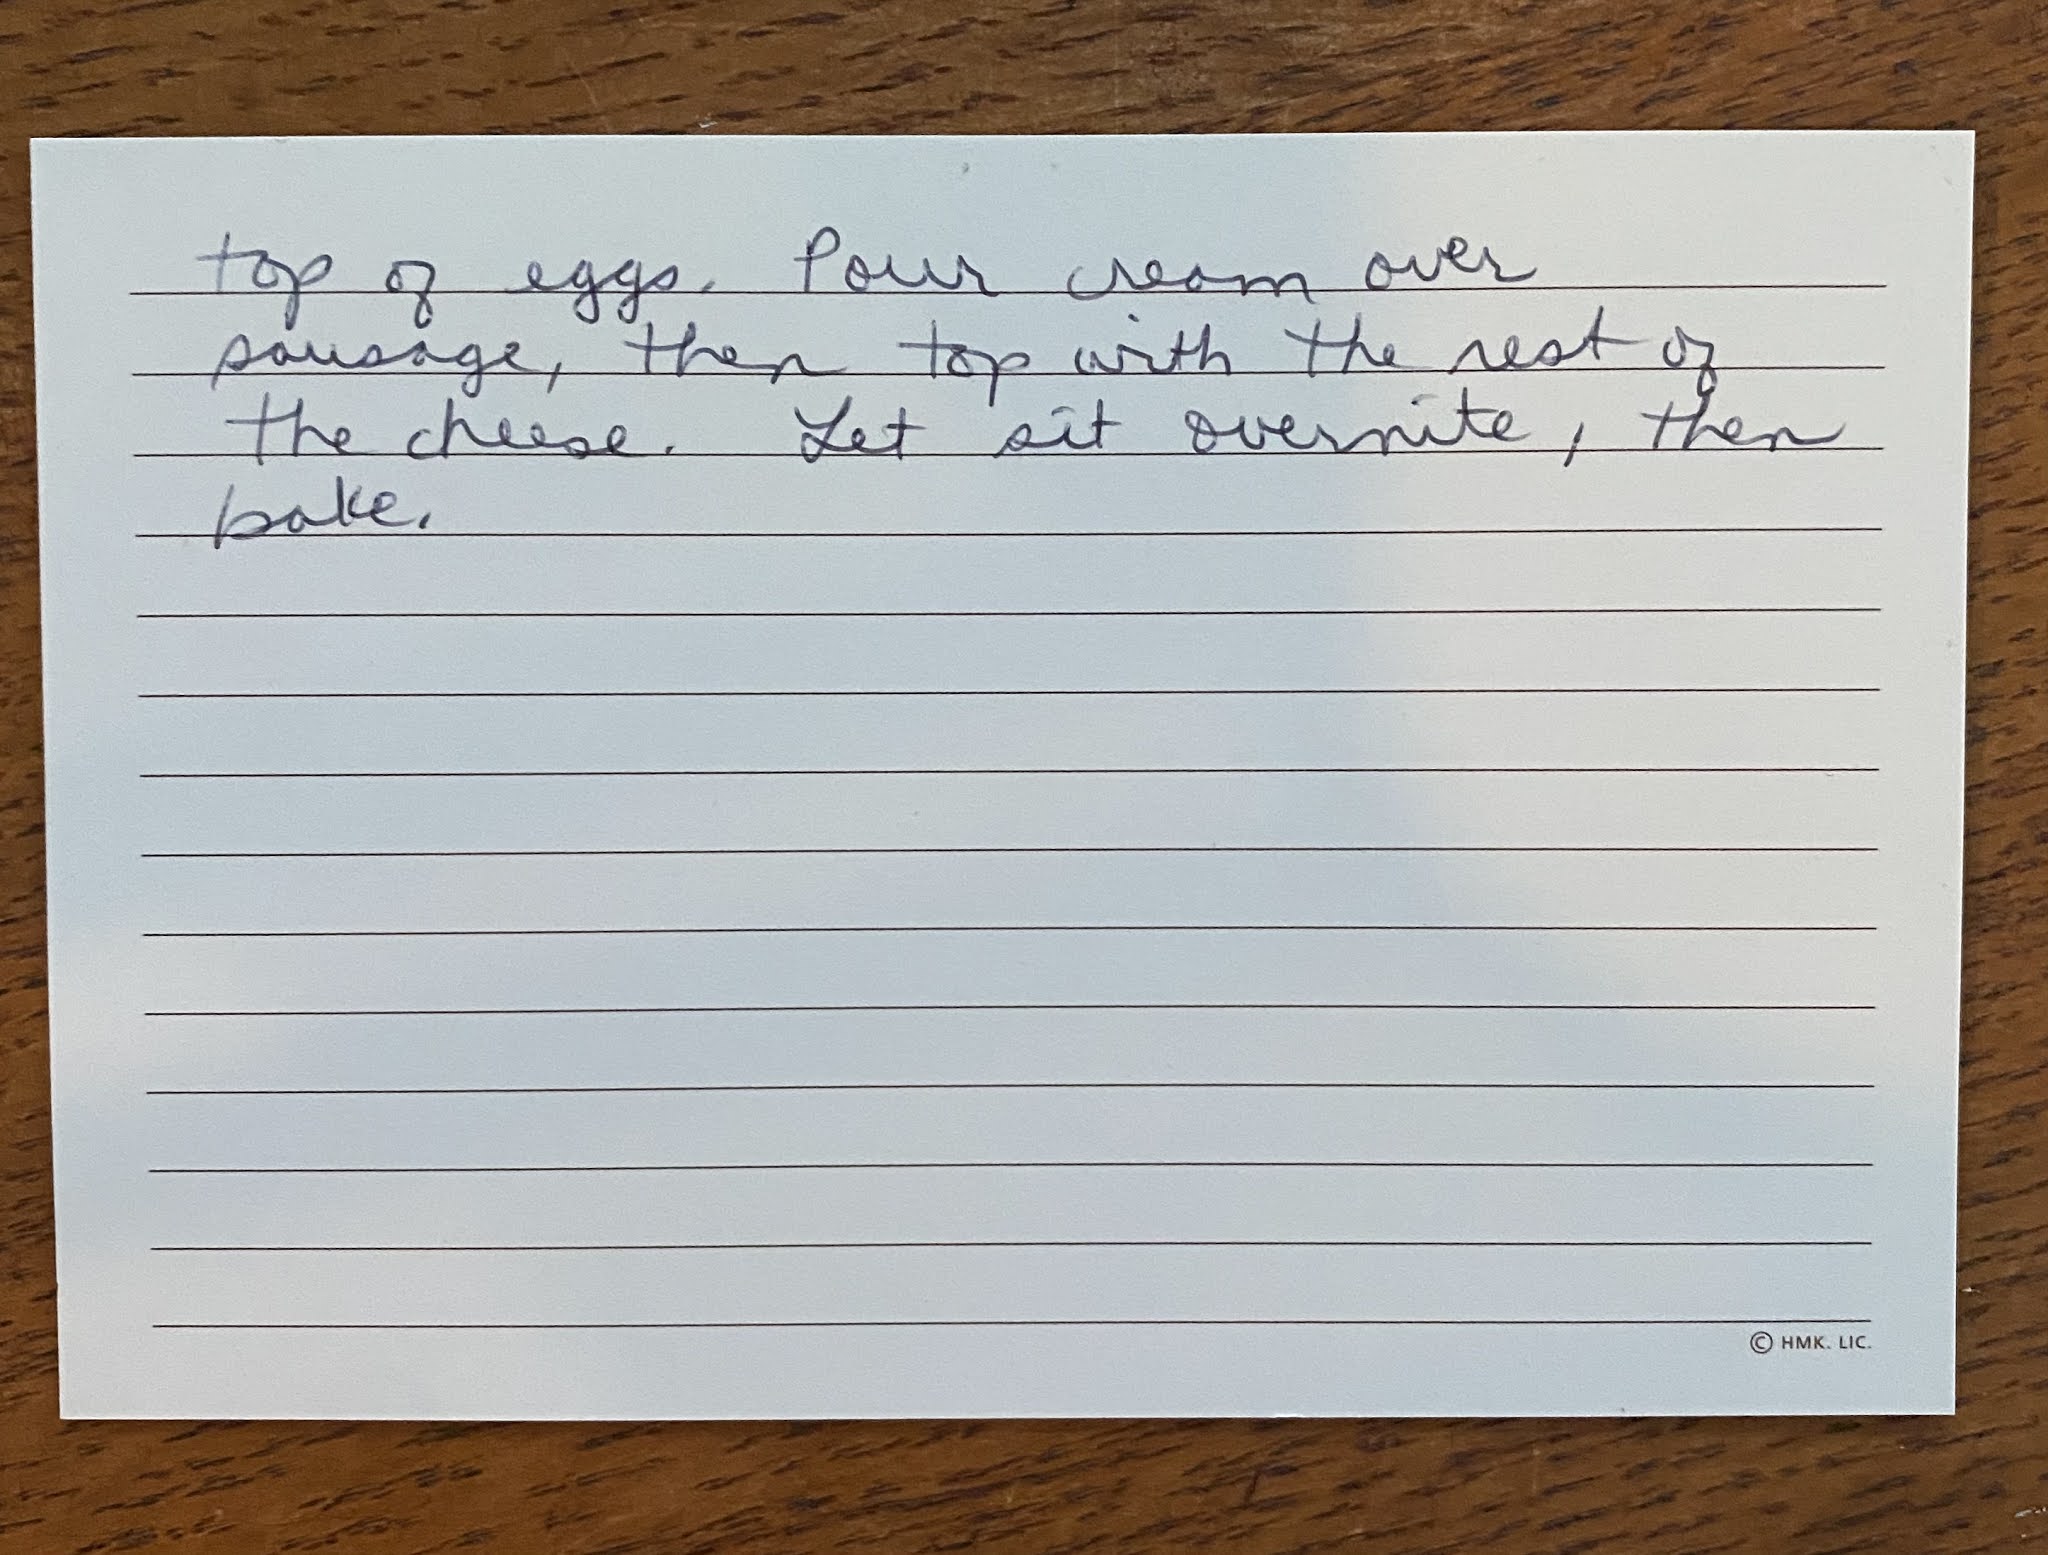 top of eggs. Pour cream over
sausage, then top with the rest of
the cheese. Let sit overnite, then
bake.
© HMK. LIC.